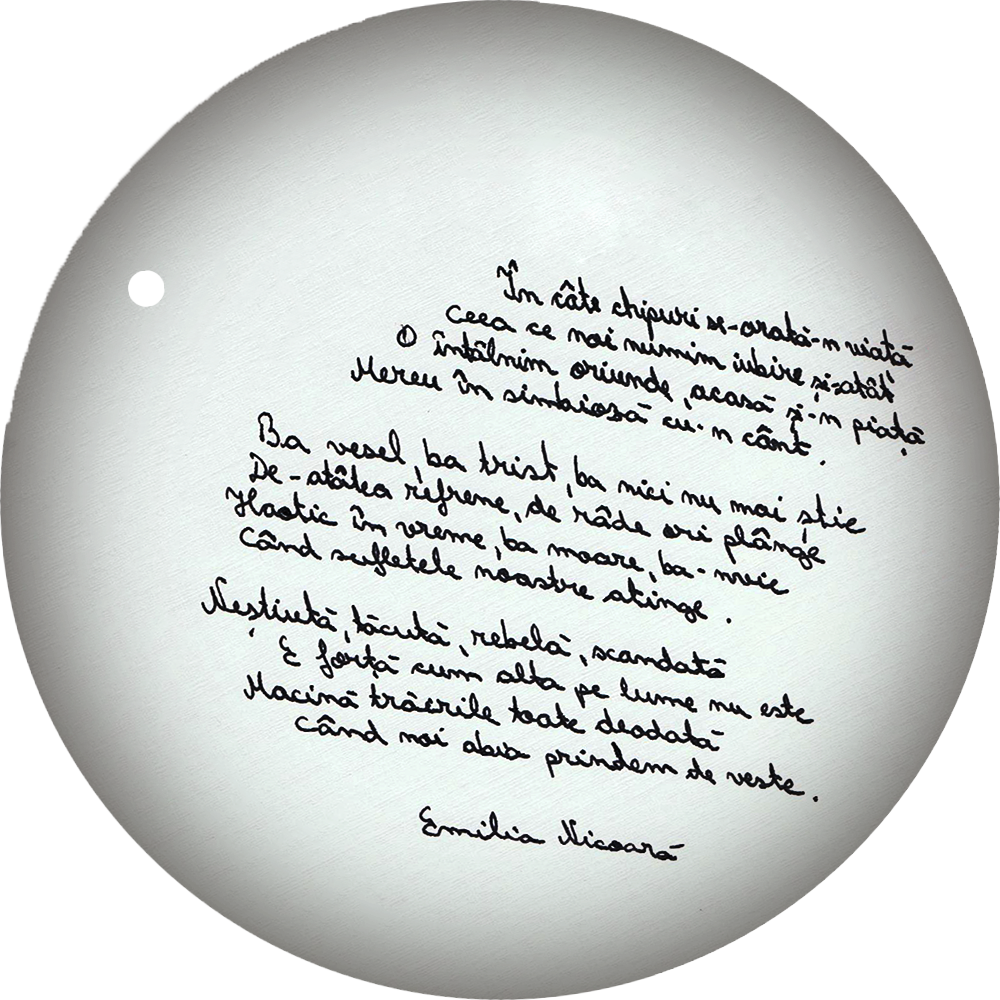 În câte chipuri se-arată-n viață
Ceea ce noi numim iubire și-atât
O întâlnim oriunde, acasă și-n piață
Mereu în simbioză cu-n cânt.
Ba vesel, ba trist, ba nici nu mai știe
De-atâtea refrene, de râde ori plânge
Haotic în vreme, ba moare, ba-nvie
Când sufletele noastre atinge.
Neștiută, tăcută, rebelă, scandată
E forță cum alta pe lume nu este
Macină trăirile toate deodată
Când noi abia prindem de veste.
Emilia Nicoară